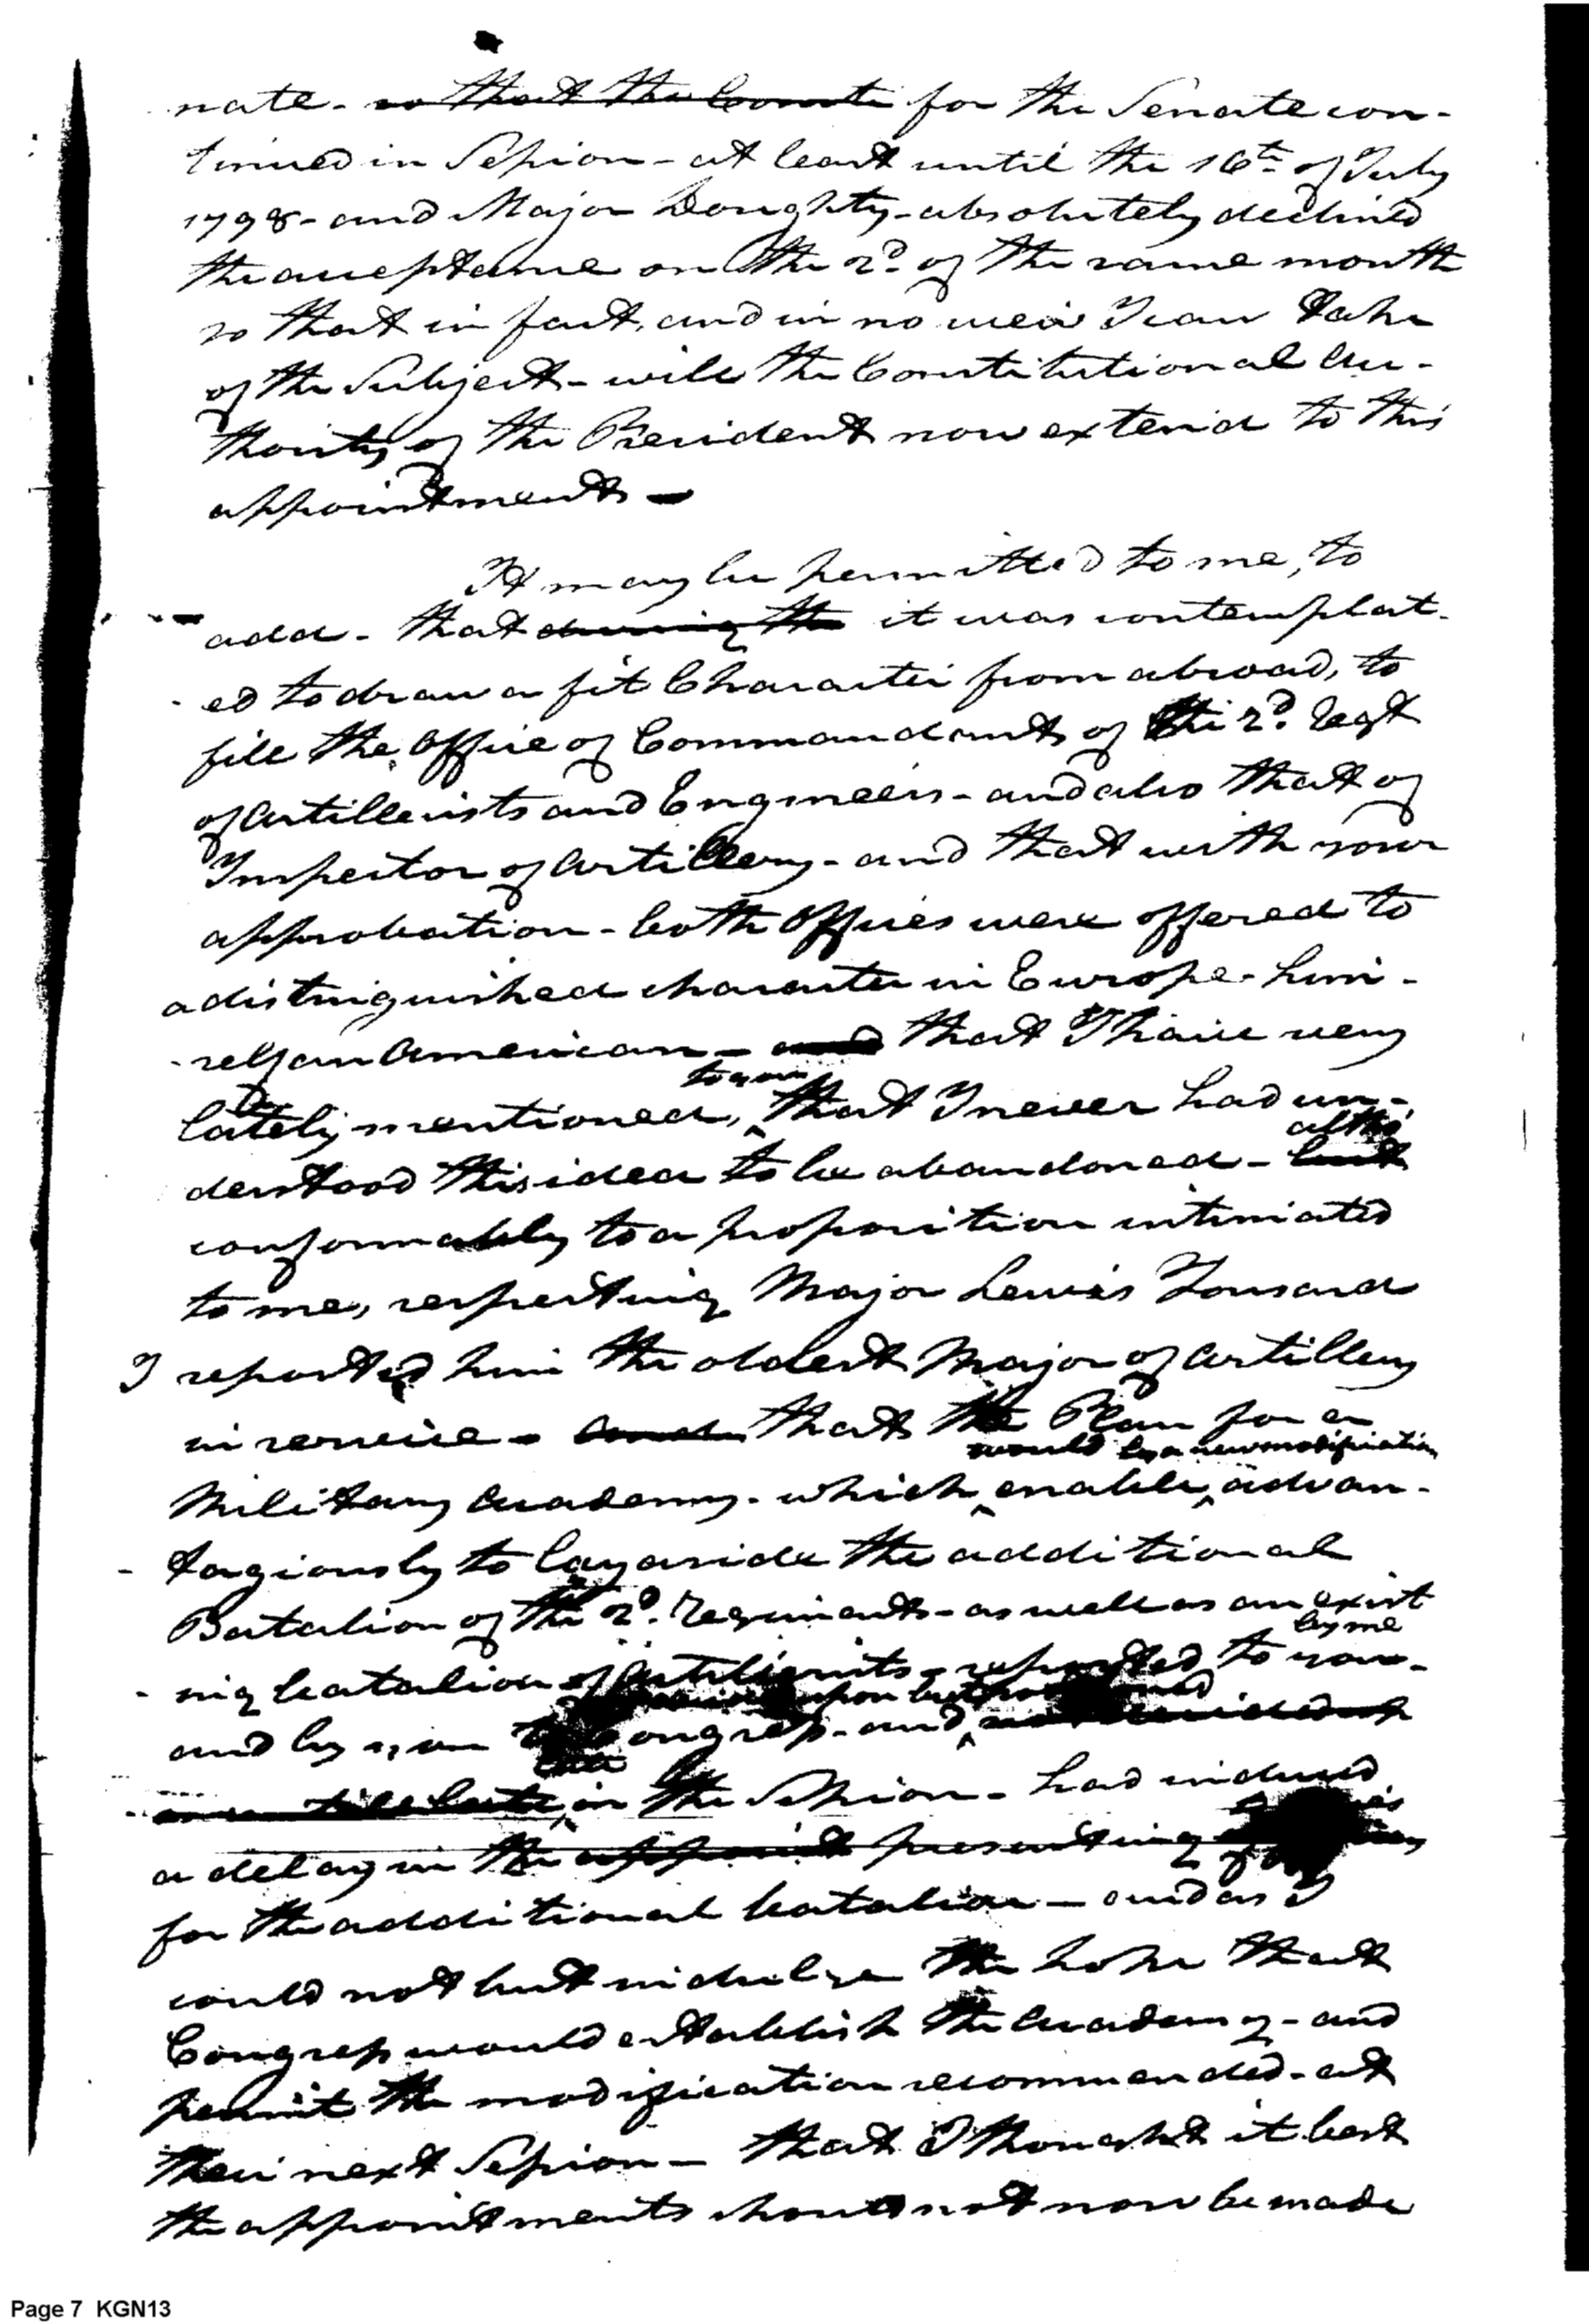 nate - so that the Comte for the Senate con-
tinued in Session - at least until the 16th of July
1798 - and Major Doughty - absolutely declined
the acceptance on the 2d. of the same month
so that in fact, and in no view I can take
of the Subject - will the Constitutional au-
thority of the President now extend to this
appointment -
It may be permitted to me, to
add - that during the it was contemplat-
ed to draw a fit Character from abroad, to
fill the Office of Commandant of the 2d. Regt
of Artillerists and Engineers - and also that of
Inspector of Artillery - and that with your
approbation - both Offices were offered to
a distinguished character in Europe - him-
self an American - and that I have very
to you
lately mentioned, that I never had un-
altho'
derstood this idea to be abandoned - but
conformably to a proposition intimated
to me, respecting Major Lewis Tousard
I reported him the oldest Major of Artillery
in service - and that the Plan for a
would by a new modification
Military Academy - which enable advan-
tagiously to lay aside the additional
Batalion of the 2d. Regiment - as well as an exist
by me
ing batalion of Artillerists - reported to you -
upon but
and by you to Congress - and not decided up
on till late in the Session - had induced
a delay in the appoint presenting
for the additional batalion - and as I
could not but indulge the hope that
Congress would establish the Academy - and
permit the modification recommended - at
their next Session - that I thought it best
the appointments should not now be made
Page 7 KGN13